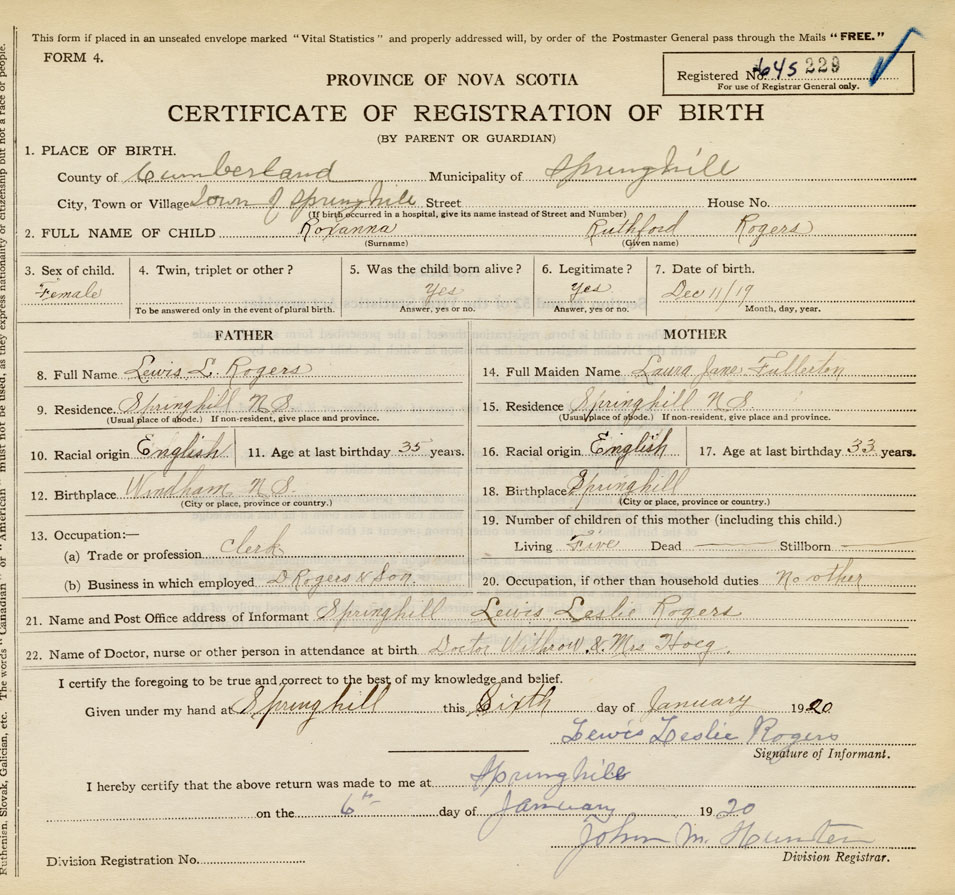 This form if placed in an unsealed envelope marked "Vital Statistics" and properly addressed will, by order of the Postmaster General pass through the Mails "FREE."
FORM 4.
Registered No. 645 229
For use of Registrar General only.
PROVINCE OF NOVA SCOTIA
CERTIFICATE OF REGISTRATION OF BIRTH
(BY PARENT OR GUARDIAN)
1. PLACE OF BIRTH.
County of Cumberland Municipality of Springhill
City, Town or Village Town of Springhill Street House No.
(If birth occurred in a hospital, give its name instead of Street and Number)
2. FULL NAME OF CHILD Roxanna Ruthford Rogers
(Surname) (Given name)
3. Sex of child. 4. Twin, triplet or other? 5. Was the child born alive? 6. Legitimate? 7. Date of birth.
Female Yes Yes Dec 11/19
To be answered only in the event of plural birth. Answer, yes or no. Answer, yes or no. Month, day, year.
FATHER MOTHER
8. Full Name Lewis L. Rogers 14. Full Maiden Name Laura Jane Fullerton
9. Residence. Springhill N S. 15. Residence Springhill N S.
(Usual place of abode.) If non-resident, give place and province. (Usual place of abode.) If non-resident, give place and province.
10. Racial origin English 11. Age at last birthday 35 years. 16. Racial origin English 17. Age at last birthday 33 years.
12. Birthplace Windham N S. 18. Birthplace Springhill
(City or place, province or country.) (City or place, province or country.)
13. Occupation:— 19. Number of children of this mother (including this child.)
(a) Trade or profession Clerk Living Five Dead — Stillborn —
(b) Business in which employed D Rogers & Son. 20. Occupation, if other than household duties No other
21. Name and Post Office address of Informant Springhill Lewis Leslie Rogers
22. Name of Doctor, nurse or other person in attendance at birth Doctor Withrow & Mrs Hoeg.
I certify the foregoing to be true and correct to the best of my knowledge and belief.
Given under my hand at Springhill this Sixth day of January 1920
Lewis Leslie Rogers
Signature of Informant.
I hereby certify that the above return was made to me at Springhill
on the 6th day of January 1920
John M. Hunter
Division Registration No. Division Registrar.
Ruthenien, Slovak, Galician, etc. The words "Canadian" or "American" must not be used, as they express nationality or citizenship but not a race or people.